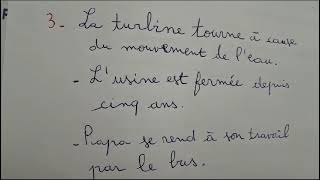 3. La turbine tourne à cause
du mouvement de l'eau.
- L'usine est fermée depuis
cinq ans.
- Papa se rend à son travail
par le bus.